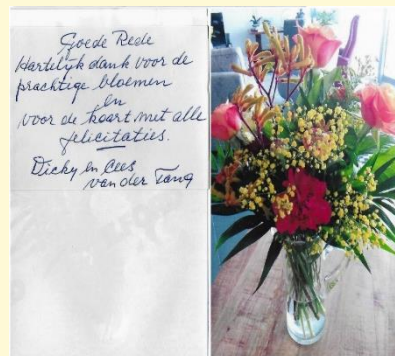 Goede Rede
Hartelijk dank voor de
prachtige bloemen
en
voor de kaart met alle
felicitaties.
Dicky en Cees
van der Tang